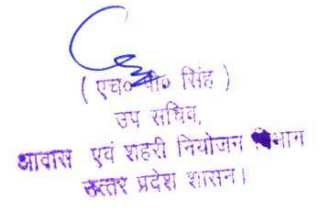 ( एच० पी० सिंह )
उप सचिव,
आवास एवं शहरी नियोजन विभाग
उत्तर प्रदेश शासन।